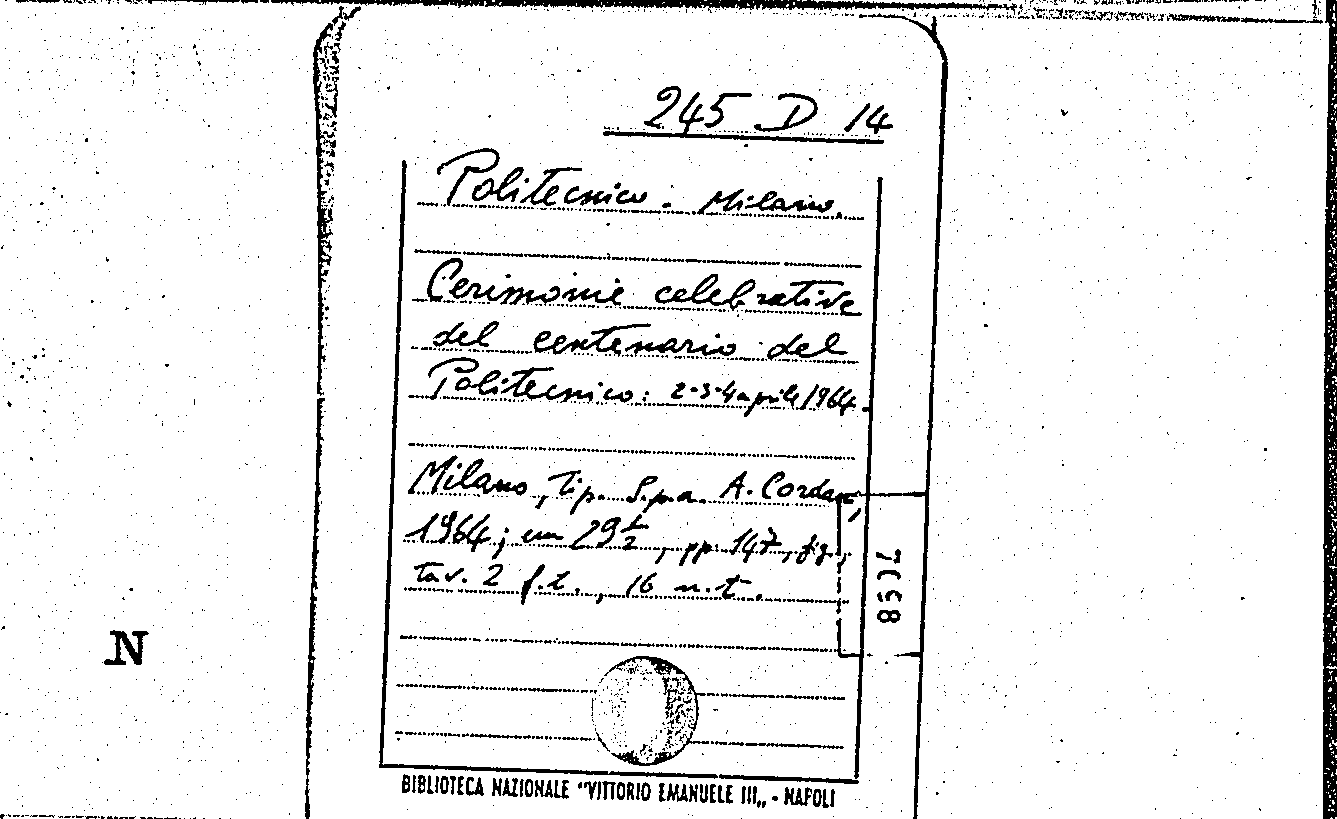 245 D 14
Politecnico. Milano.
Cerimonie celebrative
del centenario del
Politecnico: 2-3-4 aprile 1964.
Milano, Tip. S.p.a. A. Cordani,
1964; cm 29 1/2, pp. 147, fig.,
tav. 2 f.t., 16 n.t.
N
BIBLIOTECA NAZIONALE "VITTORIO EMANUELE III„ - NAPOLI